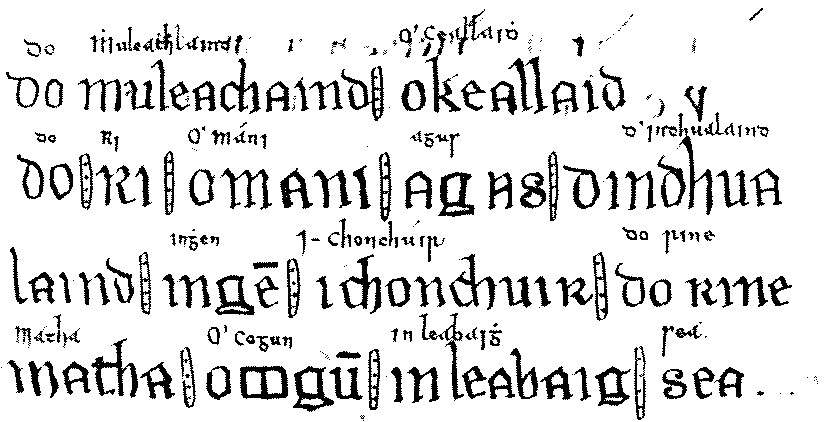 do muleachlaind O'Ceallaiḋ
do muleachaind okeallaid
do Ri O'Máni agus d'indhualaind
do ri omani agas dindhua
ingen I-Chonchúir do rine
laind ingē ichonchuir do rine
Matha O'Cogun in leabaiġ sea.
matha ocogū in leabaig sea.